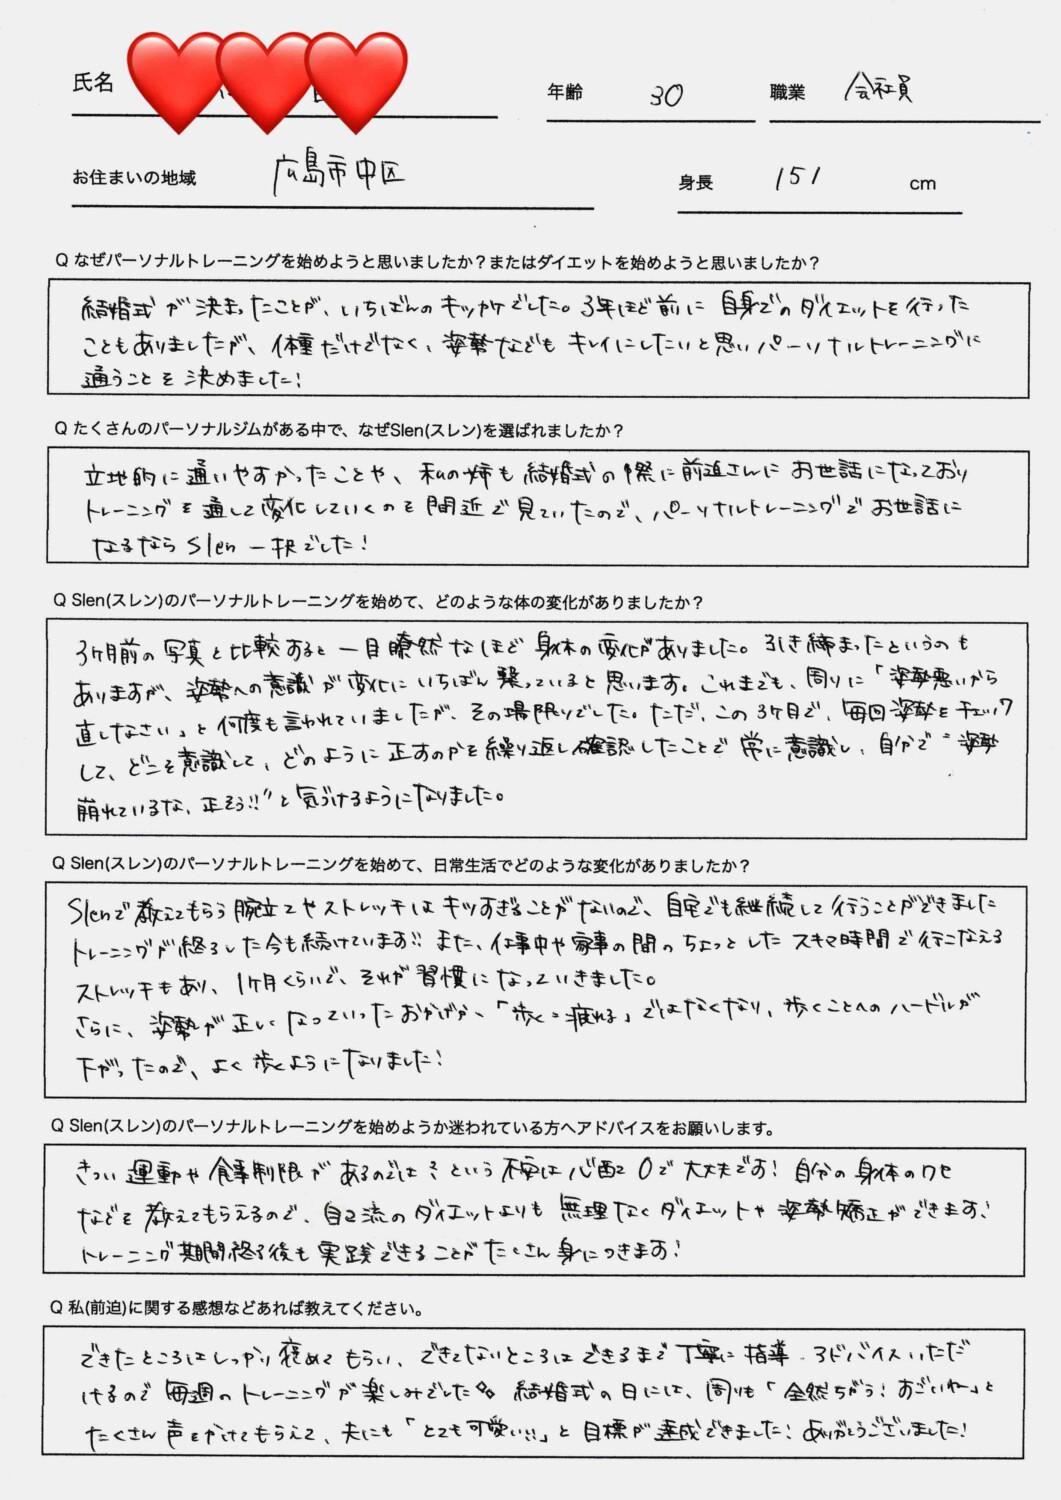 氏名
年齢 30
職業 会社員
お住まいの地域 広島市中区
身長 151 cm
Q なぜパーソナルトレーニングを始めようと思いましたか？またはダイエットを始めようと思いましたか？
結婚式が決まったことが、いちばんのキッカケでした。3年ほど前に自身でのダイエットを行った
こともありましたが、体重だけでなく、姿勢などもキレイにしたいと思いパーソナルトレーニングに
通うことを決めました!
Q たくさんのパーソナルジムがある中で、なぜSlen(スレン)を選ばれましたか？
立地的に通いやすかったことや、私の姉も結婚式の際に前迫さんにお世話になっており
トレーニングを通して変化していくのを間近で見ていたので、パーソナルトレーニングでお世話に
なるならSlen一択でした!
Q Slen(スレン)のパーソナルトレーニングを始めて、どのような体の変化がありましたか？
3ヶ月前の写真と比較すると一目瞭然なほど身体の変化がありました。引き締まったというのも
ありますが、姿勢への意識が変化にいちばん繋っていると思います。これまでも、周りに「姿勢悪いから
直しなさい」と何度も言われていましたが、その場限りでした。ただ、この3ヶ月で、毎回姿勢をチェック
して、どこを意識して、どのように正すのかを繰り返し確認したことで常に意識し、自分で"姿勢
崩れているな、正そう!!"と気づけるようになりました。
Q Slen(スレン)のパーソナルトレーニングを始めて、日常生活でどのような変化がありましたか？
Slenで教えてもらう腕立てやストレッチはキツすぎることがないので、自宅でも継続して行うことができました
トレーニングが終了した今も続けています!! また、仕事中や家事の間のちょっとしたスキマ時間で行こなえる
ストレッチもあり、1ヶ月くらいで、それが習慣になっていきました。
さらに、姿勢が正しくなっていったおかげか、「歩く=疲れる」ではなくなり、歩くことへのハードルが
下がったので、よく歩くようになりました!
Q Slen(スレン)のパーソナルトレーニングを始めようか迷われている方へアドバイスをお願いします。
きつい運動や食事制限があるのでは？という不安は心配0で大丈夫です! 自分の身体のクセ
などを教えてもらえるので、自己流のダイエットよりも無理なくダイエットや姿勢矯正ができます!
トレーニング期間終了後も実践できることがたくさん身につきます!
Q 私(前迫)に関する感想などあれば教えてください。
できたところはしっかり褒めてもらい、できてないところはできるまで丁寧に指導・アドバイスいただ
けるので毎週のトレーニングが楽しみでした 結婚式の日には、周りも「全然ちがう! すごいねー」と
たくさん声をかけてもらえて、夫にも「とても可愛い!!」と目標が達成できました! ありがとうございました!